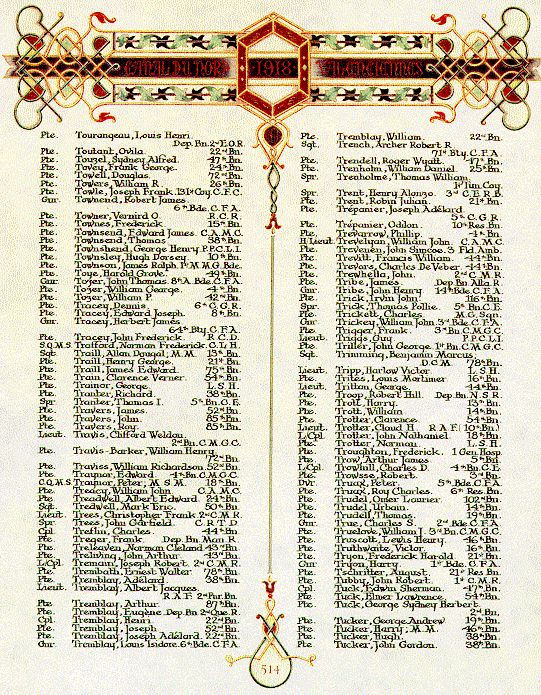 CANADIAN 1918 EXPEDITIONARY
Pte. Tourangeau, Louis Henri
Dep. Bn. 2nd E.O.R.
Pte. Toutant, Ovila 22nd Bn.
Pte. Touzel, Sydney Alfred. 47th Bn.
Pte. Tovey, Frank George. 24th Bn.
Pte. Towell, Douglas 72nd Bn.
Pte. Towers, William R. 26th Bn.
Pte. Towle, Joseph Frank. 131st Coy. C.F.C.
Gnr. Townend, Robert James
6th Bde. C.F.A.
Pte. Towner, Vernird O. R.C.R.
Pte. Townes, Frederick 15th Bn.
Pte. Townsend, Edward James C.A.M.C.
Pte. Townsend, Thomas 38th Bn.
Pte. Townshend, George Henry P.P.C.L.I.
Pte. Townsley, Hugh Dorsey 10th Bn.
Pte. Townson, James Ralph. 1st M.M.G. Bde.
Pte. Toye, Harold Grove. 49th Bn.
Gnr. Tozer, John Thomas. 8th A. Bde. C.F.A.
Pte. Tozer, William George. 4th Bn.
Pte. Tozer, William P. 42nd Bn.
Pte. Tracey, Dennis 6th C.G.R.
Pte. Tracey, Edward Joseph 8th Bn.
Gnr. Tracey, Herbert James
64th Bty. C.F.A.
Pte. Tracey, John Frederick R.C.D.
S.Q.M.S. Trafford, Norman Frederick. C.L.H.
Sgt. Traill, Allan Dougal; M.M. 13th Bn.
Pte. Traill, Henry George 21st Bn.
Pte. Traill, James Edward. 75th Bn.
Pte. Train, Clarence Verner 54th Bn.
Pte. Trainor, George L.S.H.
Pte. Tranter, Richard 38th Bn.
Spr. Tranter, Thomas I. 5th Bn. C.E.
Pte. Travers, James 52nd Bn.
Pte. Travers, John 85th Bn.
Pte. Travers, Roy 85th Bn.
Lieut. Travis, Clifford Weldon
2nd Bn. C.M.G.C.
Pte. Travis-Barker, William Henry
72nd Bn.
Pte. Traviss, William Richardson 52nd Bn.
Pte. Traynor, Edward 4th Bn. C.M.G.C.
C.Q.M.S. Traynor, Peter; M.S.M. 18th Bn.
Pte. Treacy, William John C.A.M.C.
Pte. Treadwell, Albert Edward 24th Bn.
Sgt. Tredwell, Mark Eric 50th Bn.
Lieut. Trees, Christopher Frank 2nd C.M.R.
Spr. Trees, John Garfield C.R.T.D.
Cpl. Treflin, Charles 44th Bn.
Pte. Treger, Frank Dep. Bn. Man R.
Pte. Treleaven, Norman Cleland 43rd Bn.
Pte. Treliving, John Arthur 43rd Bn.
L/Cpl. Tremain, Joseph Robert 2nd C.M.R.
Pte. Trembath, Ernest Walter 78th Bn.
Pte. Tremblay, Adélard 38th Bn.
Lieut. Tremblay, Albert Jacques
R.A.F. 2nd Pnr. Bn.
Pte. Tremblay, Arthur 87th Bn.
Pte. Tremblay, Eugène Dep. Bn 2nd Que. R.
Cpl. Tremblay, Henri 22nd Bn.
Pte. Tremblay, Joseph 52nd Bn.
Pte. Tremblay, Joseph Adélard. 22nd Bn.
Gnr. Tremblay, Louis Isidore. 6th Bde. C.F.A.
Pte. Tremblay, William 22nd Bn.
Sgt. Trench, Archer Robert R.
71st Bty. C.F.A.
Pte. Trendell, Roger Wyatt. 47th Bn.
Pte. Trenholm, William Daniel. 25th Bn.
Spr. Trenholme, Thomas William
1st Tun. Coy.
Spr. Trent, Henry Alonzo. 3rd C.E.R.B.
Pte. Trent, Robin Julian. 21st Bn.
Pte. Trépanier, Joseph Adélard
5th C.G.R.
Pte. Trépanier, Odilon 10th Res. Bn.
Pte. Trevarrow, Phillip 4th Bn.
H. Lieut. Trevelyan, William John C.A.M.C.
Pte. Trevenen, John Simcoe. 3rd Fld. Amb.
Pte. Trevitt, Francis William 44th Bn.
Pte. Trevors, Charles De Veber 44th Bn.
Pte. Trewhella, John. 2nd C.M.R.
Pte. Tribe, James Dep Bn Alta R.
Gnr. Tribe, John Henry 14th Bde. C.F.A.
Pte. Trick, Irvin John 116th Bn.
Spr. Trick, Thomas Pollie. 5th Bn. C.E.
Pte. Trickett, Charles M.G. Sqn.
Gnr. Trickey, William John. 3rd Bde. C.F.A.
Pte. Trigger, Frank 3rd Bn. C.M.G.C.
Lieut. Triggs, Guy P.P.C.L.I.
Pte. Triller, John George 1st Bn. C.M.G.C.
Sgt. Trimming, Benjamin Marcus;
D.C.M. 78th Bn.
Lieut. Tripp, Harlow Victor L.S.H.
Pte. Trites, Louis Mortimer 16th Bn.
Lieut. Tritton, George 44th Bn.
Pte. Troop, Robert Hill Dep Bn. N.S.R.
Pte. Trott, Harry. 13th Bn.
Pte. Trott, William 14th Bn.
Pte. Trotter, Clarence 54th Bn.
Lieut. Trotter, Cloud H. R.A.F. (10th Bn.)
L/Cpl. Trotter, John Nathaniel 18th Bn.
Pte. Trotter, Norman L.S.H.
Pte. Troughton, Frederick. 1 Gen. Hosp.
Pte. Trow, Arthur James 5th Bn.
L/Cpl. Trowhill, Charles D. 4th Bn. C.E.
Pte. Trowsse, Robert 5th Bn.
Dvr. Truax, Peter 5th Bde. C.F.A.
Pte. Truax, Roy Charles. 6th Res. Bn.
Pte. Trudel, Omer Laurier 102nd Bn.
Pte. Trudel, Urbain 14th Bn.
Pte. Trudell, Thomas 19th Bn.
Gnr. True, Charles S. 2nd Bde. C.F.A.
Pte. Truelove, William J. 3rd Bn. C.M.G.C.
Pte. Truscott, Lewis Henry 46th Bn.
Pte. Truthwaite, Victor 16th Bn.
Pte. Tryon, Frederick Harold 21st Bn.
Gnr. Tryon, Harry 1st Bde. C.F.A.
Pte. Tschritter, August. 21st Res. Bn.
Pte. Tubby, John Robert 1st C.M.R.
Cpl. Tuck, Edwin Sherman 47th Bn.
Pte. Tuck, Elmer Lawrence 54th Bn.
Pte. Tuck, George Sydney Herbert
2nd Bn.
Pte. Tucker, George Andrew 19th Bn.
Pte. Tucker, Harry; M.M. 46th Bn.
Pte. Tucker, Hugh 38th Bn.
Pte. Tucker, John Gordon. 38th Bn.
514